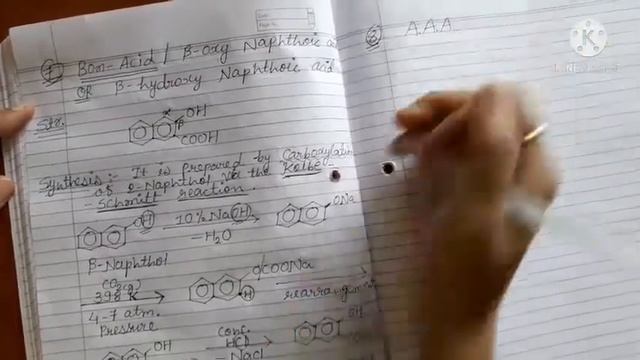 ① Bon-Acid / β-oxy Naphthoic
OR β-hydroxy Naphthoic acid
Str.
α
OH
β
COOH
Synthesis:- It is prepared by Carboxylation
of β-Naphthol via the Kolbe
-Schmitt reaction.
OH
10% NaOH
-H₂O
ONa
β-Naphthol
CO₂(g)
398 K
4-7 atm.
Pressure
OCOONa
H
rearrangement
OH
Conc.
HCl
-NaCl
OH
② A.A.A.